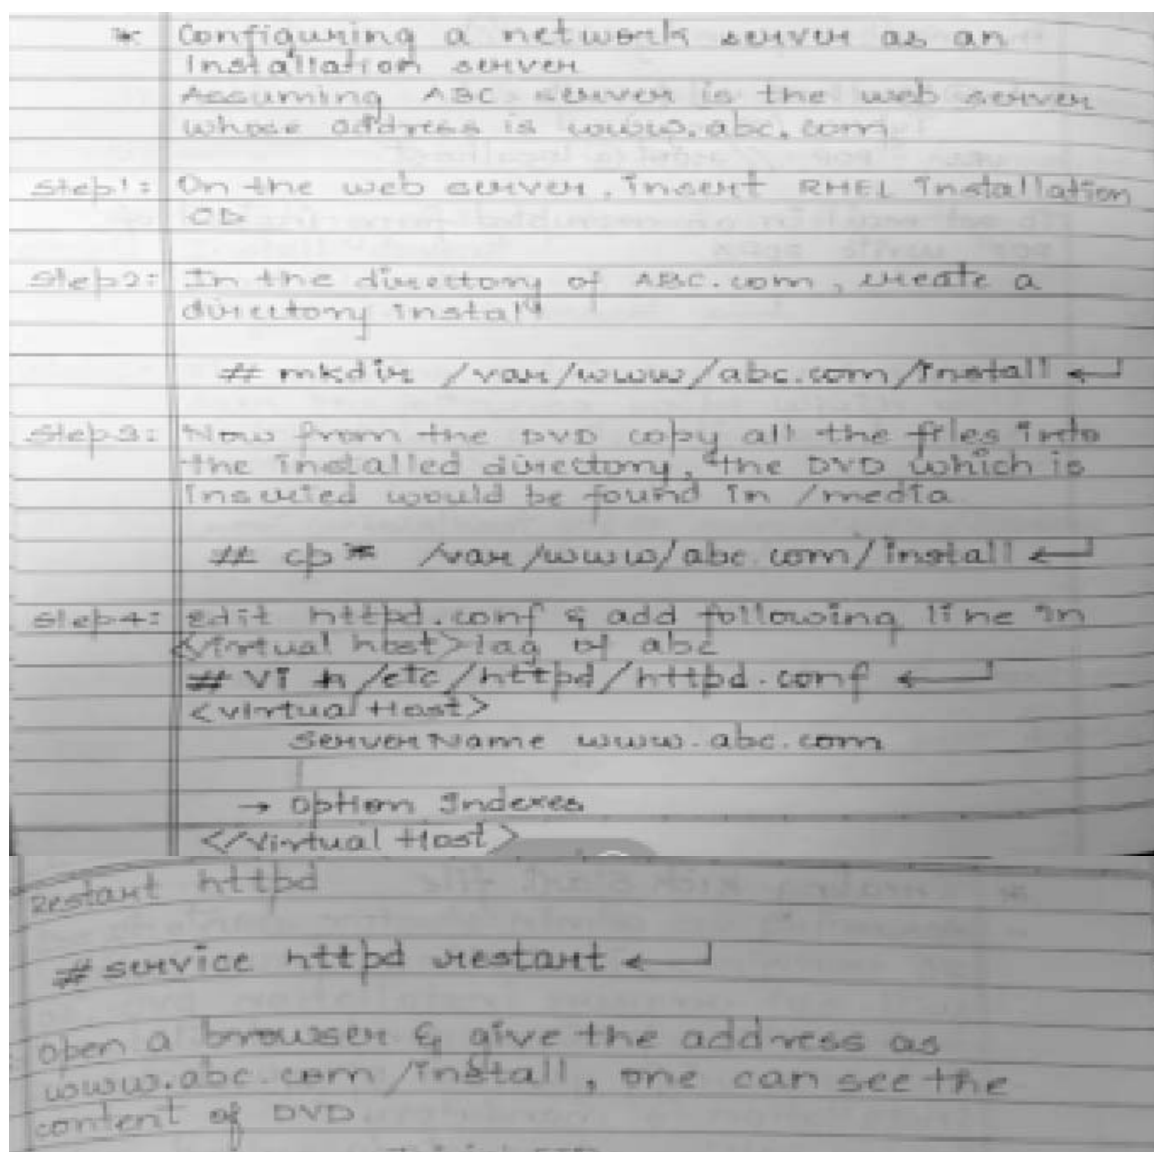 * Configuring a network server as an
Installation server
Assuming ABC server is the web server
whose address is www.abc.com
Step1: On the web server, insert RHEL Installation
CD
Step2: In the directory of ABC.com, create a
directory install
# mkdir /var/www/abc.com/install ↵
Step3: Now from the DVD copy all the files into
the installed directory, the DVD which is
inserted would be found in /media
# cp * /var/www/abc.com/install ↵
Step4: edit httpd.conf & add following line in
<virtual host> tag of abc
# vi /etc/httpd/httpd.conf ↵
<virtual Host>
ServerName www.abc.com
→ Option Indexes
</Virtual Host>
Restart httpd
# service httpd restart ↵
open a browser & give the address as
www.abc.com/install, one can see the
content of DVD